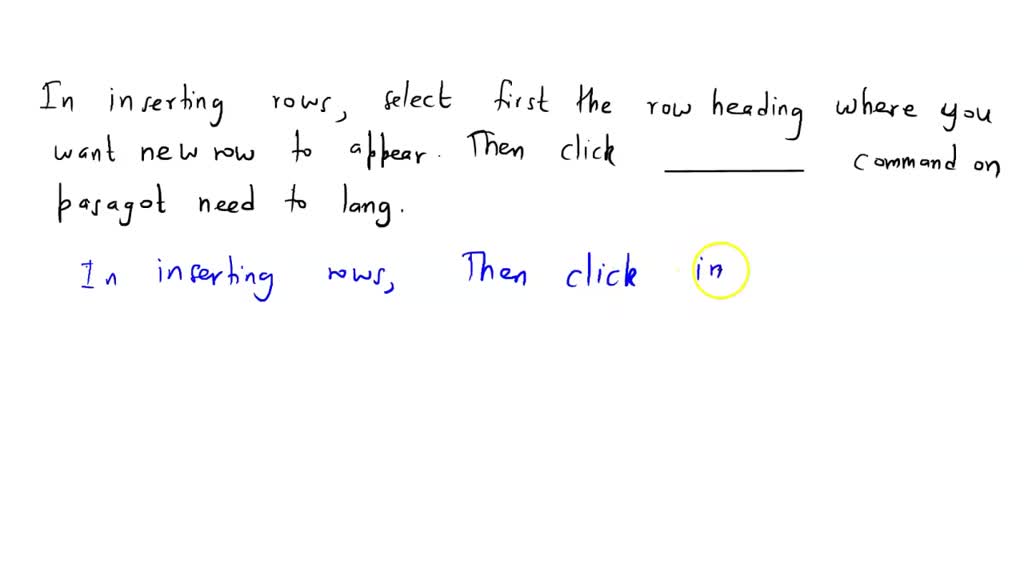 In inserting rows, select first the row heading where you
want new row to appear. Then click ________ command on
pasagot need to lang.
In inserting rows, Then click in